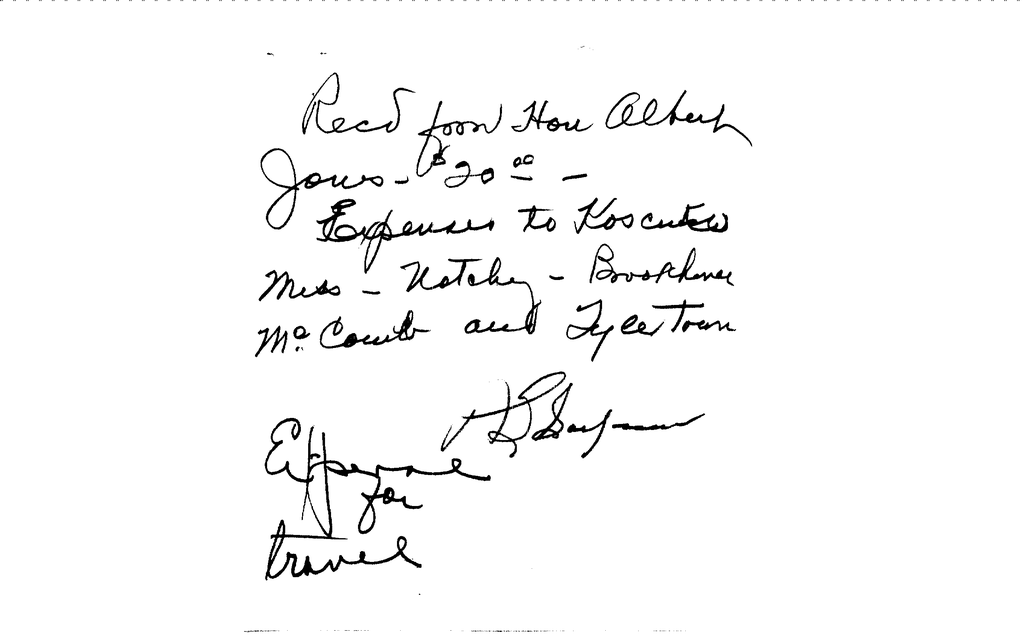 Recd from Hon Albert
Jones - $20.00 -
Expenses to Kosciusko
Miss - Natchez - Brookhaven
McComb and Tylertown
Expense
for
travel